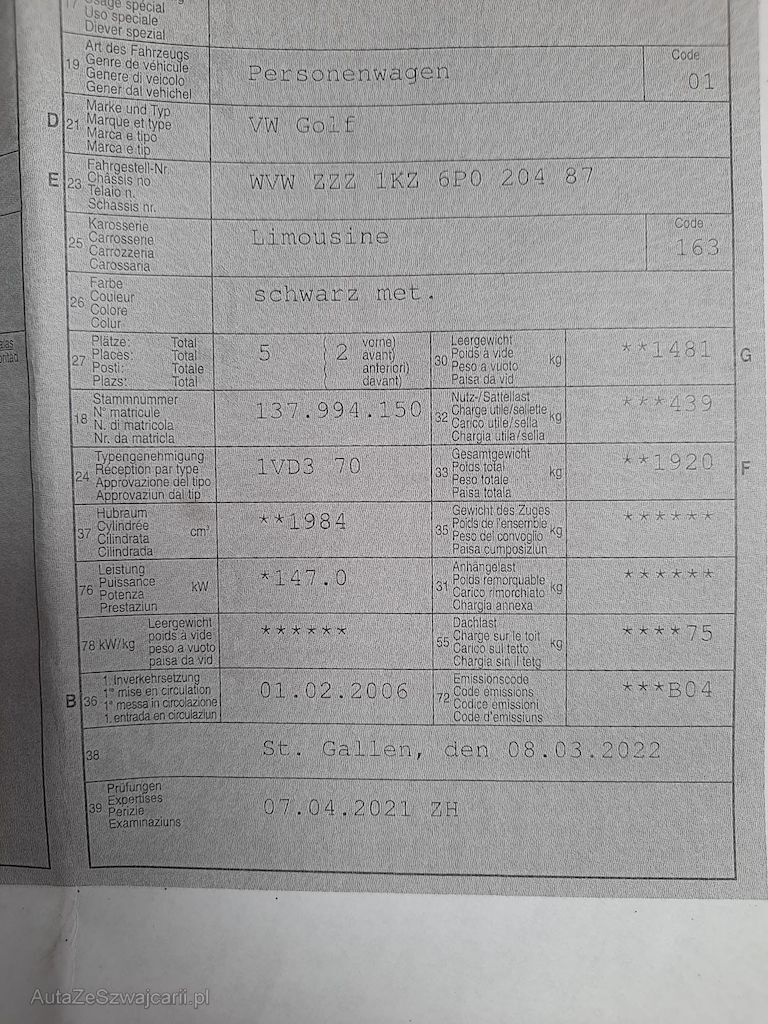 17 Usage spécial
Uso speciale
Diever spezial
19 Art des Fahrzeugs
Genre de véhicule
Genere di veicolo
Gener dal vehichel
Personenwagen
Code
01
D 21 Marke und Typ
Marque et type
Marca e tipo
Marca e tip
VW Golf
E 23 Fahrgestell-Nr.
Châssis no
Telaio n.
Schassis nr.
WVW ZZZ 1KZ 6P0 204 87
25 Karosserie
Carrosserie
Carrozzeria
Carossaria
Limousine
Code
163
26 Farbe
Couleur
Colore
Colur
schwarz met.
27 Plätze: Total
Places: Total
Posti: Totale
Plazs: Total
5 ( 2 vorne)
avant)
anteriori)
davant)
30 Leergewicht
Poids à vide
Peso a vuoto
Paisa da vid
kg
**1481
G
18 Stammnummer
N° matricule
N. di matricola
Nr. da matricla
137.994.150
32 Nutz-/Sattellast
Charge utile/sellette
Carico utile/sella
Chargia utila/sella
kg
***439
24 Typengenehmigung
Réception par type
Approvazione del tipo
Approvaziun dal tip
1VD3 70
33 Gesamtgewicht
Poids total
Peso totale
Paisa totala
kg
**1920
F
37 Hubraum
Cylindrée
Cilindrata
Cilindrada
cm³
**1984
35 Gewicht des Zuges
Poids de l'ensemble
Peso del convoglio
Paisa cumposiziun
kg
******
76 Leistung
Puissance
Potenza
Prestaziun
kW
*147.0
31 Anhängelast
Poids remorquable
Carico rimorchiato
Chargia annexa
kg
******
78 kW/kg
Leergewicht
poids à vide
peso a vuoto
paisa da vid
******
55 Dachlast
Charge sur le toit
Carico sul tetto
Chargia sin il tetg
kg
****75
B 36 1. Inverkehrsetzung
1re mise en circulation
1a messa in circolazione
1. entrada en circulaziun
01.02.2006
72 Emissionscode
Code émissions
Codice emissioni
Code d'emissiuns
***B04
38
St. Gallen, den 08.03.2022
39 Prüfungen
Expertises
Perizie
Examinaziuns
07.04.2021 ZH
AutaZeSzwajcarii.pl